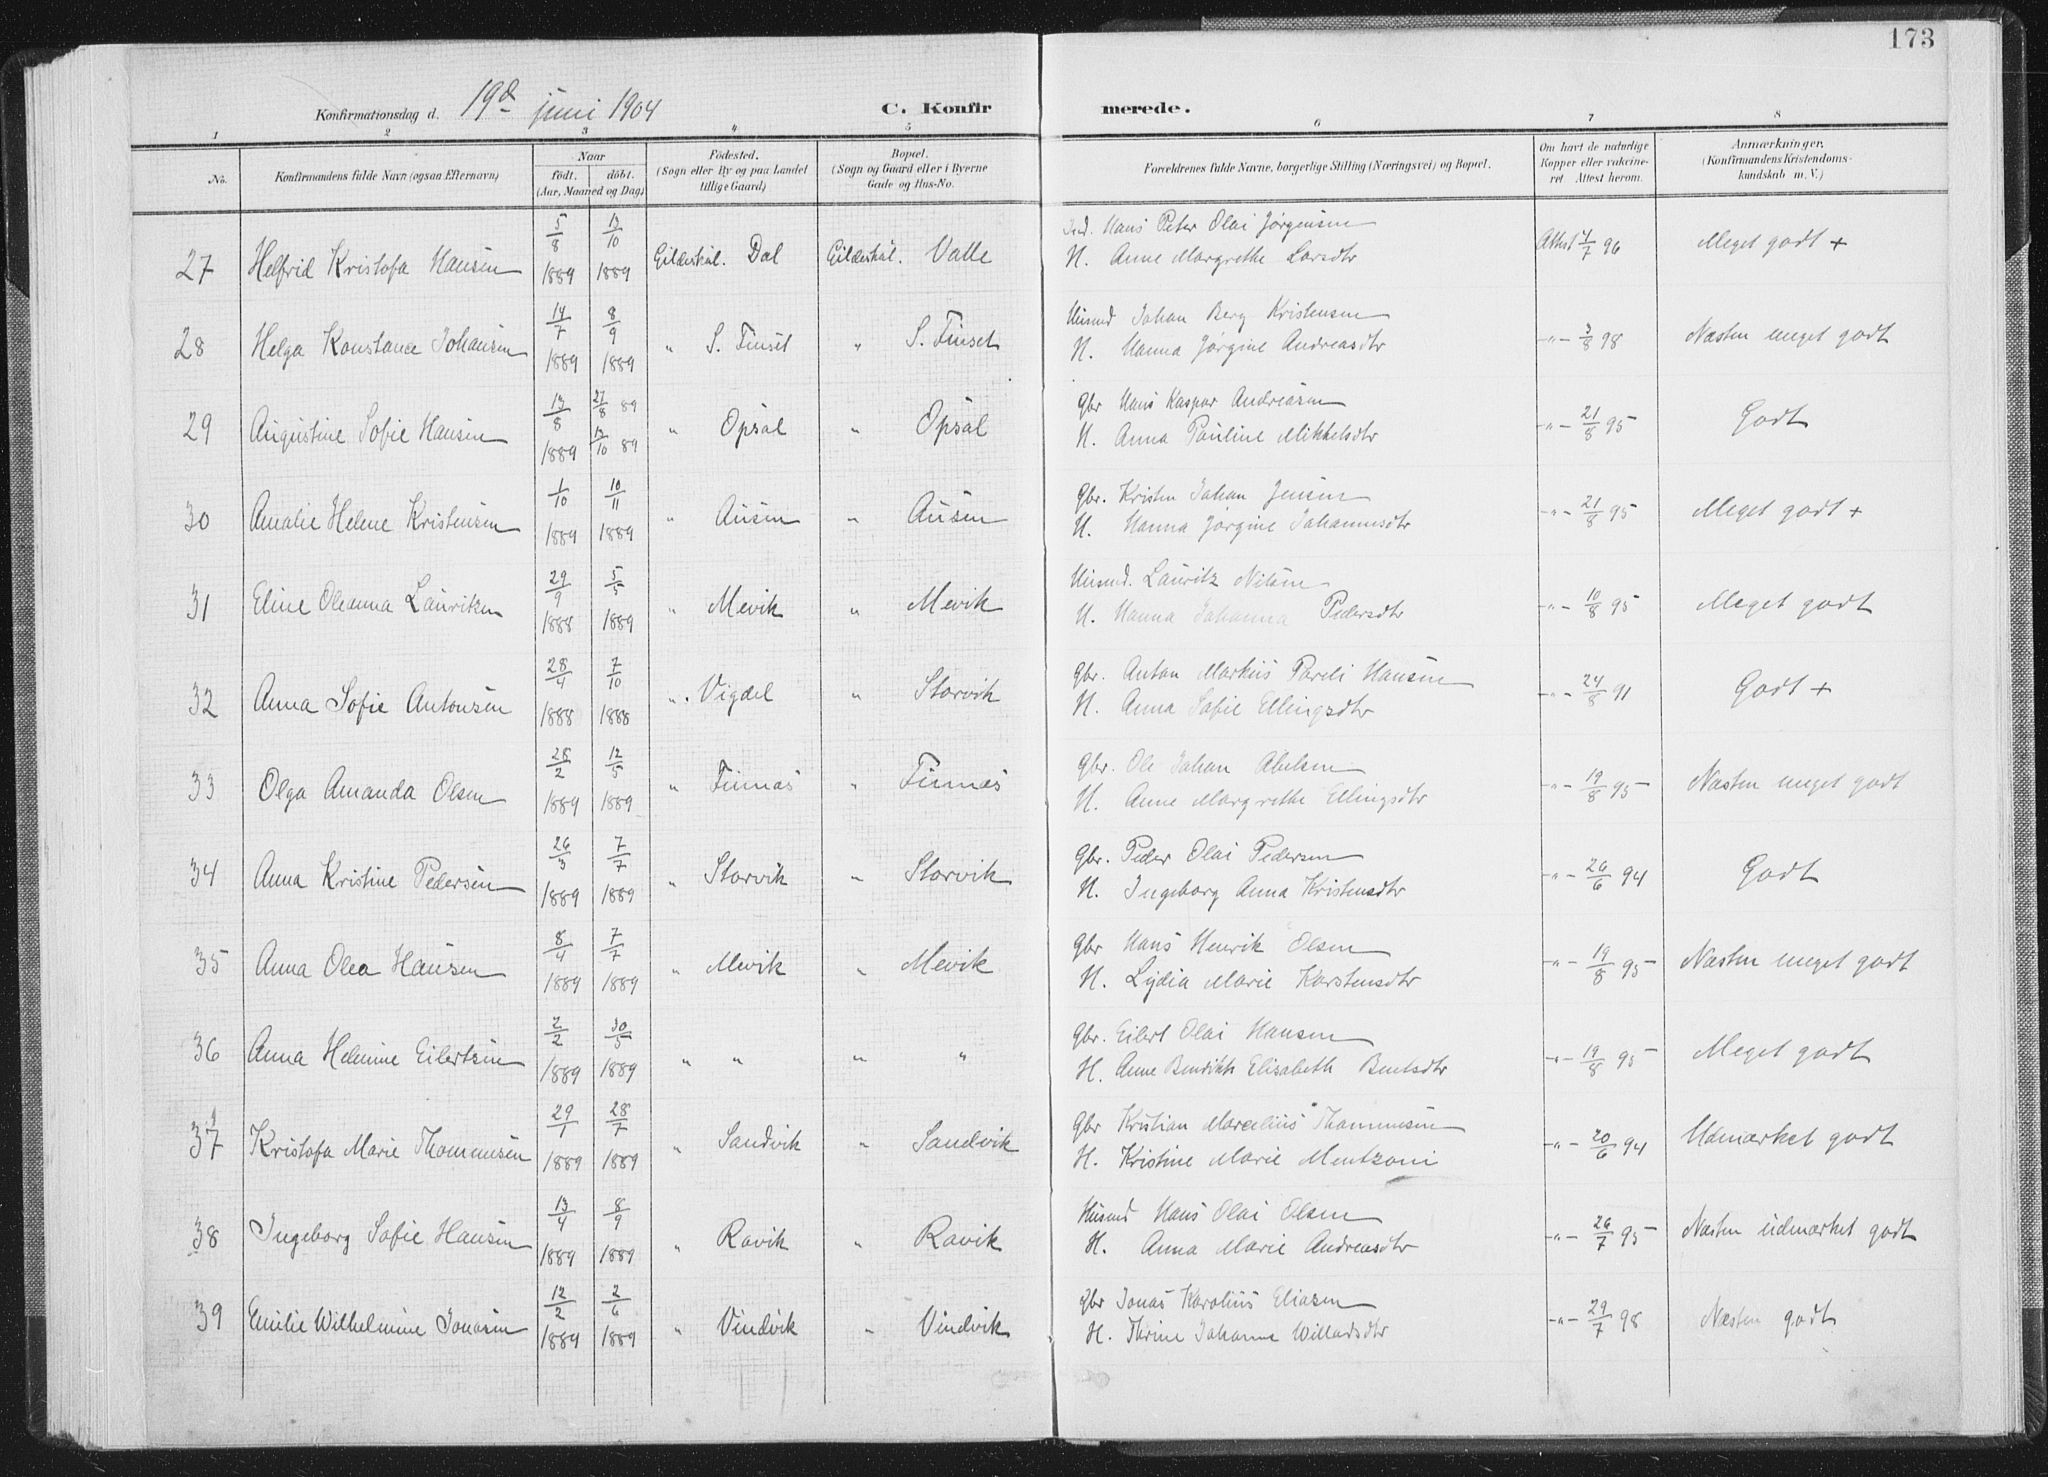 173
Konfirmationsdag d. 19d juni 1904 C. Konfir merede.
1 2 3 4 5 6 7 8
No. Konfirmandens fulde Navn (ogsaa Efternavn) Naar født. døbt. (Aar, Maaned og Dag) Fødested. (Sogn eller By og paa Landet tillige Gaard) Bopæl. (Sogn og Gaard eller i Byerne Gade og Hus-No. Forældrenes fulde Navne, borgerlige Stilling (Næringsvei) og Bopæl. Om havt de naturlige Kopper eller vakcineret. Attest herom. Anmærkninger. (Konfirmandens Kristendomskundskab m. V.)
27 Helfrid Kristofa Hansen 5/8 1889 13/10 1889 Gildeskål. Dal Gildeskål. Valle Hans Peter Olai Jørgensen Attest 4/7 96 Meget godt +
H. Anne Margrethe Larsdtr
28 Helga Konstance Johansen 14/7 1889 8/9 1889 " S. Finset " S. Finset Husmd Johan Berg Kristensen -"- 3/8 98 Næsten meget godt
H. Hanna Jørgine Andreasdtr
29 Augustine Sofie Hansen 13/8 1889 27/8 89 13/10 89 " Opsal " Opsal Gbr Hans Kaspar Andreasen -"- 21/8 95 Godt
H. Anna Pauline Mikkelsdtr
30 Amalie Helene Kristensen 1/10 1889 10/11 1889 " Ausen " Ausen Gbr. Kristen Johan Jensen -"- 21/8 95 Meget godt +
H. Hanna Jørgine Johannesdtr
31 Eline Oleanna Lauritsen 29/9 1888 5/5 1889 " Mevik " Mevik Husmd. Lauritz Nilsen -"- 10/8 95 Meget godt
H. Hanna Johanna Pedersdtr
32 Anna Sofie Antonsen 28/4 1888 7/10 1888 " Vigdel " Storvik Gbr. Anton Markus Pareli Hansen -"- 24/8 91 Godt +
H. Anna Sofie Ellingsdtr
33 Olga Amanda Olsen 28/2 1889 12/5 1889 " Finnæs " Finnæs Gbr. Ole Johan Abelsen -"- 19/8 95 Næsten meget godt
H. Anne Margrethe Ellingsdtr
34 Anna Kristine Pedersen 26/3 1889 7/7 1889 " Storvik " Storvik Gbr. Peder Olai Pedersen -"- 26/6 94 Godt
H. Ingeborg Anna Kristensdtr
35 Anna Olea Hansen 8/4 1889 7/7 1889 " Mevik " Mevik Gbr Hans Henrik Olsen -"- 19/8 95 Næsten meget godt
H. Lydia Marie Karstensdtr
36 Anna Helmine Eilertsen 2/2 1889 30/5 1889 " " " " Gbr. Eilert Olai Hansen -"- 19/8 95 Meget godt
H. Anne Bendikte Elisabeth Bentsdtr
37 Kristofa Marie Thommesen 29/1 1889 28/7 1889 " Sandvik " Sandvik Gbr Kristian Marcelius Thommesen -"- 20/6 94 Udmærket godt
H. Kristine Marie Mentzoni
38 Ingeborg Sofie Hansen 13/4 1889 8/9 1889 " Ravik " Ravik Husmd Hans Olai Olsen -"- 26/7 95 Næsten udmærket godt
H. Anna Marie Andreasdtr
39 Emilie Wilhelmine Jonasen 12/2 1889 2/6 1889 " Vindvik " Vindvik Gbr Jonas Karolius Eliasen -"- 29/7 98 Næsten godt
H. Thrine Johanne Willadsdtr